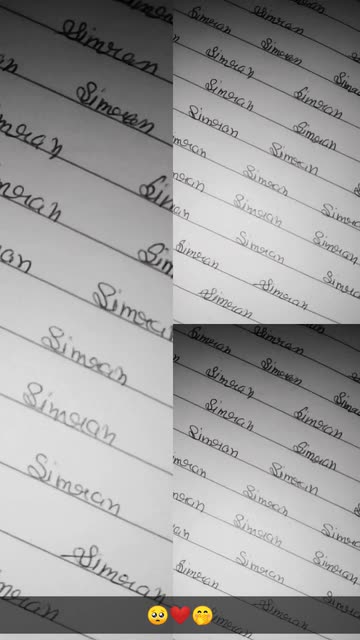 Simran
Simran
Simran
Simran
Simran
Simran
Simran
Simran
Simran
Simran Simran
Simran Simran
Simran Simran
Simran Simran
Simran Simran
Simran Simran
Simran Simran
Simran Simran
Simran
Simran Simran
Simran Simran
Simran Simran
Simran Simran
Simran Simran
Simran Simran
Simran
🥺❤️🤭